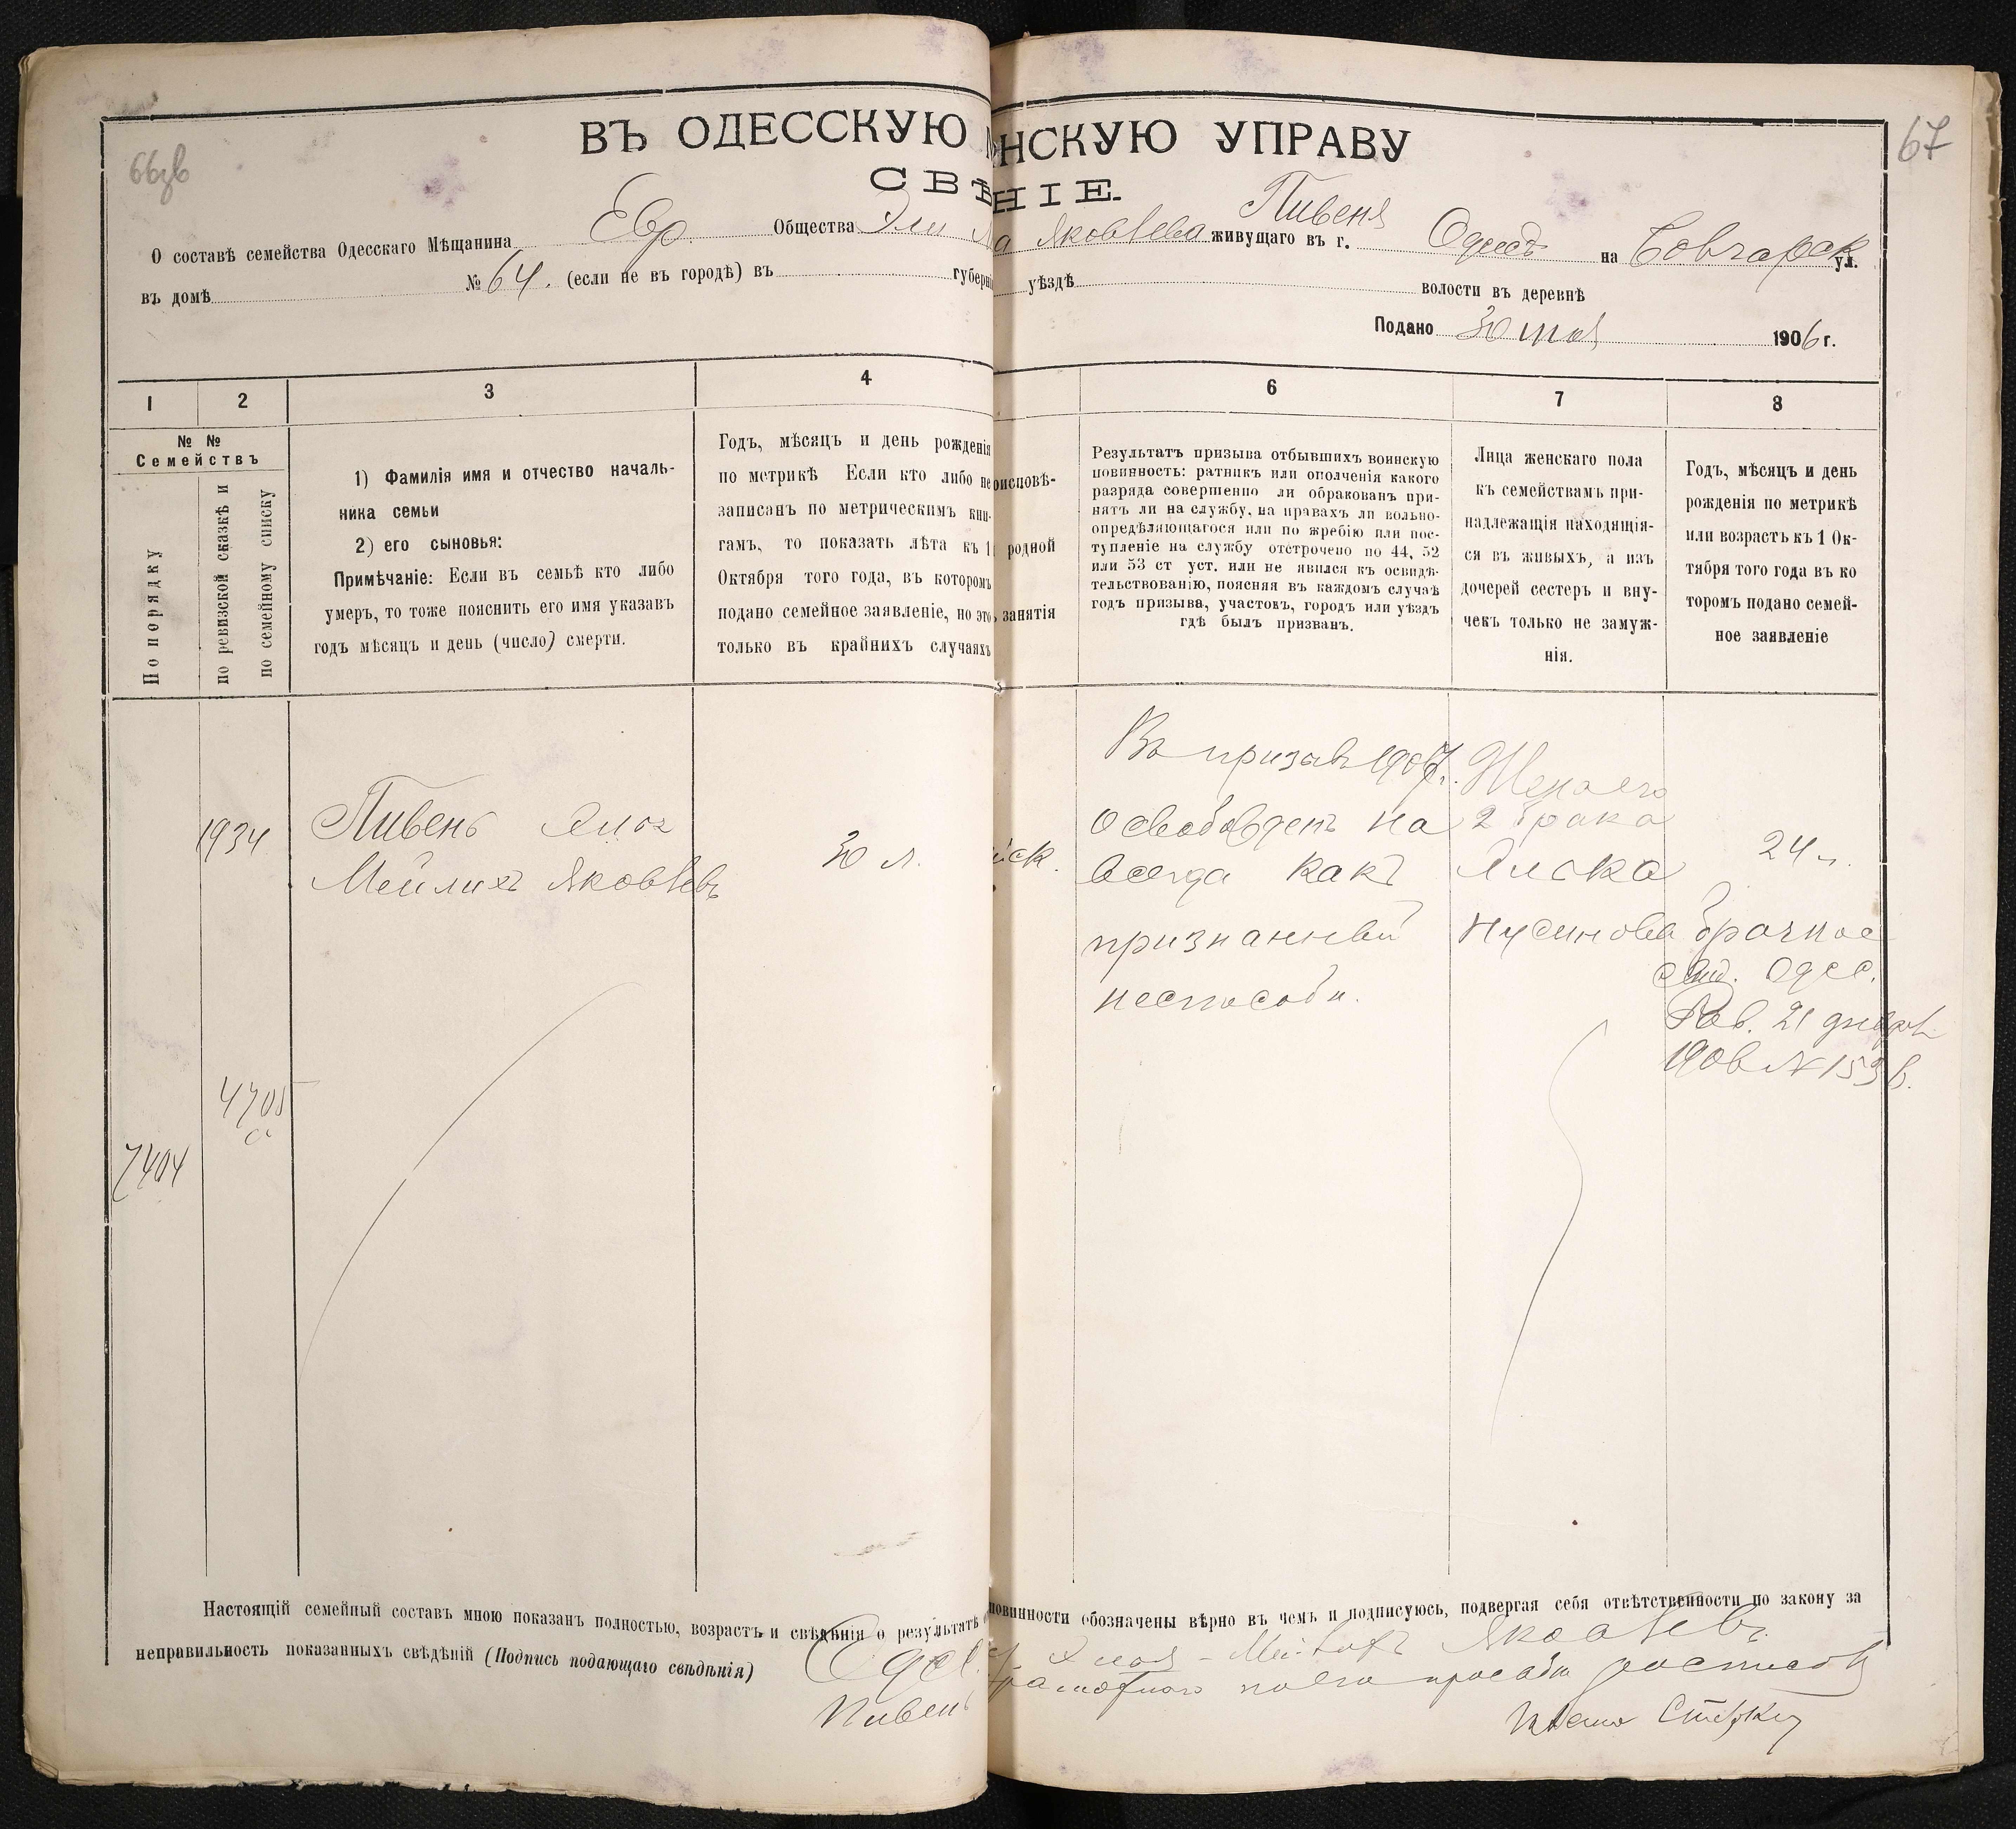 66зв
67
ВЪ ОДЕССКУЮ НСКУЮ УПРАВУ
СВѢ НІЕ.
О составѣ семейства Одесскаго Мѣщанина Евр. Общества Эли а Яковлева Пивеня живущаго въ г. на ул.
въ домѣ № 64. (если не въ городѣ) въ губерні уѣздѣ волости въ деревнѣ
Подано 30 1906 г.
1 2 3 4 6 7 8
№ №
Семействъ
По порядку
по ревизской сказкѣ и
по семейному списку
1) Фамилія имя и отчество началь-
ника семьи
2) его сыновья:
Примѣчаніе: Если въ семьѣ кто либо
умеръ, то тоже пояснить его имя указавъ
годъ мѣсяцъ и день (число) смерти.
Годъ, мѣсяцъ и день рожденія
по метрикѣ Если кто либо не
записанъ по метрическимъ кни-
гамъ, то показать лѣта къ 1
Октября того года, въ которомъ
подано семейное заявленіе, но это
только въ крайнихъ случаяхъ
оисповѣ-
родной
занятія
Результатъ призыва отбывшихъ воинскую
повинность: ратникъ или ополченія какого
разряда совершенно ли обракованъ при-
нятъ ли на службу, на правахъ ли вольно-
опредѣляющагося или по жребію или пос-
тупленіе на службу отстрочено по 44, 52
или 53 ст уст. или не явился къ освидѣ-
тельствованію, поясняя въ каждомъ случаѣ
годъ призыва, участокъ, городъ или уѣздъ
гдѣ былъ призванъ.
Лица женскаго пола
къ семействамъ при-
надлежащія находящія-
ся въ живыхъ, а изъ
дочерей сестеръ и вну-
чекъ только не замуж-
нія.
Годъ, мѣсяцъ и день
рожденія по метрикѣ
или возрастъ къ 1 Ок-
тября того года въ ко
торомъ подано семей-
ное заявленіе
1934
Пивень
Мейлихъ Яковлевъ
30 л.
Въ призывъ 190 г.
освобожденъ на
всегда какъ
признанный
неспособн.
Жена его
2 брака
Нусинова
24 л.
брачное
свид. Одес.
Рав. 21
190
4705
а
7404
Настоящій семейный составъ мною показанъ полностью, возрастъ и свѣдѣнія о результатѣ повинности обозначены вѣрно въ чемъ и подписуюсь, подвергая себя отвѣтственности по закону за
неправильность показанныхъ свѣдѣній (Подпись подающаго свѣдѣнія)
Яковлевъ
Пивень по его просьбѣ